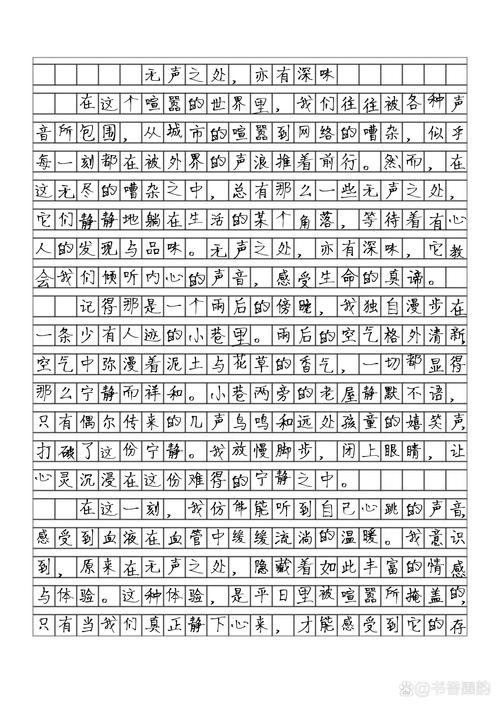 无声之处，亦有深味
在这个喧嚣的世界里，我们往往被各种声
音所包围，从城市的喧嚣到网络的嘈杂，似乎
每一刻都在被外界的声浪推着前行。然而，在
这无尽的嘈杂之中，总有那么一些无声之处，
它们静静地躺在生活的某个角落，等待着有心
人的发现与品味。无声之处，亦有深味，它教
会我们倾听内心的声音，感受生命的真谛。
记得那是一个雨后的傍晚，我独自漫步在
一条少有人迹的小巷里。雨后的空气格外清新，
空气中弥漫着泥土与花草的香气，一切都显得
那么宁静而祥和。小巷两旁的老屋静默不语，
只有偶尔传来的几声鸟鸣和远处孩童的嬉笑声
打破了这份宁静。我放慢脚步，闭上眼睛，让
心灵沉浸在这份难得的宁静之中。
在这一刻，我仿佛能听到自己心跳的声音，
感受到血液在血管中缓缓流淌的温暖。我意识
到，原来在无声之处，隐藏着如此丰富的情感
与体验。这种体验，是平日里被喧嚣所掩盖的，
只有当我们真正静下心来，才能感受到它的存